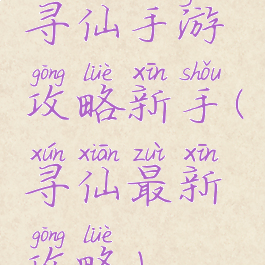 寻仙手游
gōng lüè xīn shǒu
攻略新手(
xún xiān zuì xīn
寻仙最新
gōng lüè
攻略)